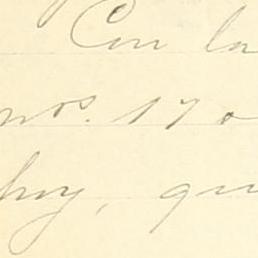 Con la
nos. 170
hoy, qu